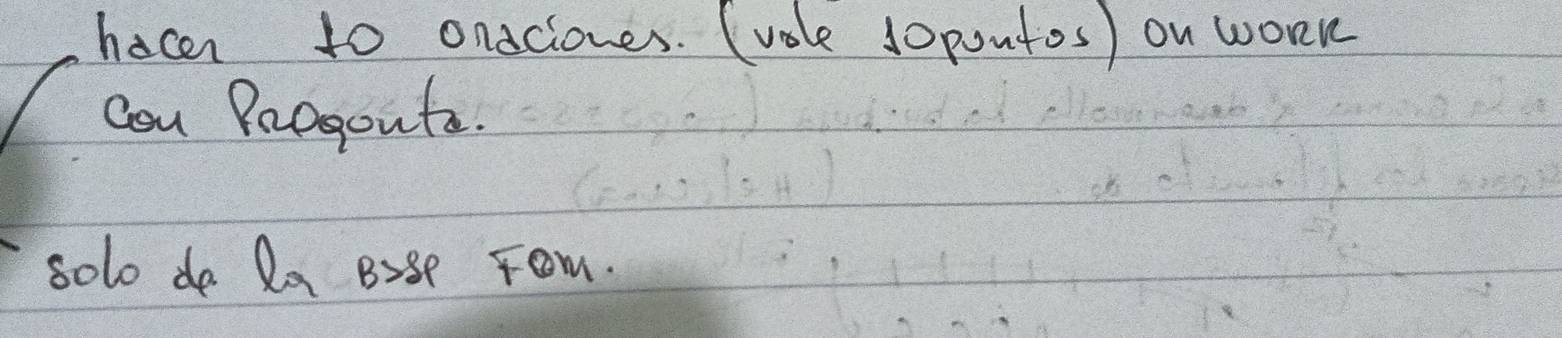 hacer 10 oraciones. (vale 10puntos) en work
con Pregonta.
solo de la B>se Fom.